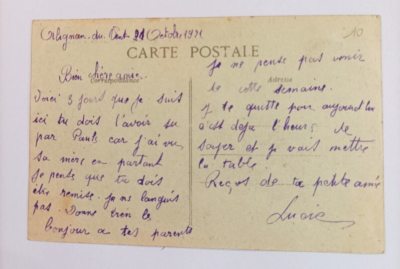 Orbignan du Cent 21 Octobre 1921
CARTE POSTALE
Correspondance
Adresse
Bien chère amie.
Voici 3 jours que je suis
ici tu dois l'avoir su
par Paule car j'ai vu
sa mère en partant
je pense que tu dois
être remise. je ne languis
pas. Donne bien le
bonjour a tes parents
je ne pense pas venir
de cette semaine.
je te quitte pour aujourd'hui
c'est deja l'heure de
souper et je vais mettre
la table.
Reçois de ta petite amie
Lucie
10